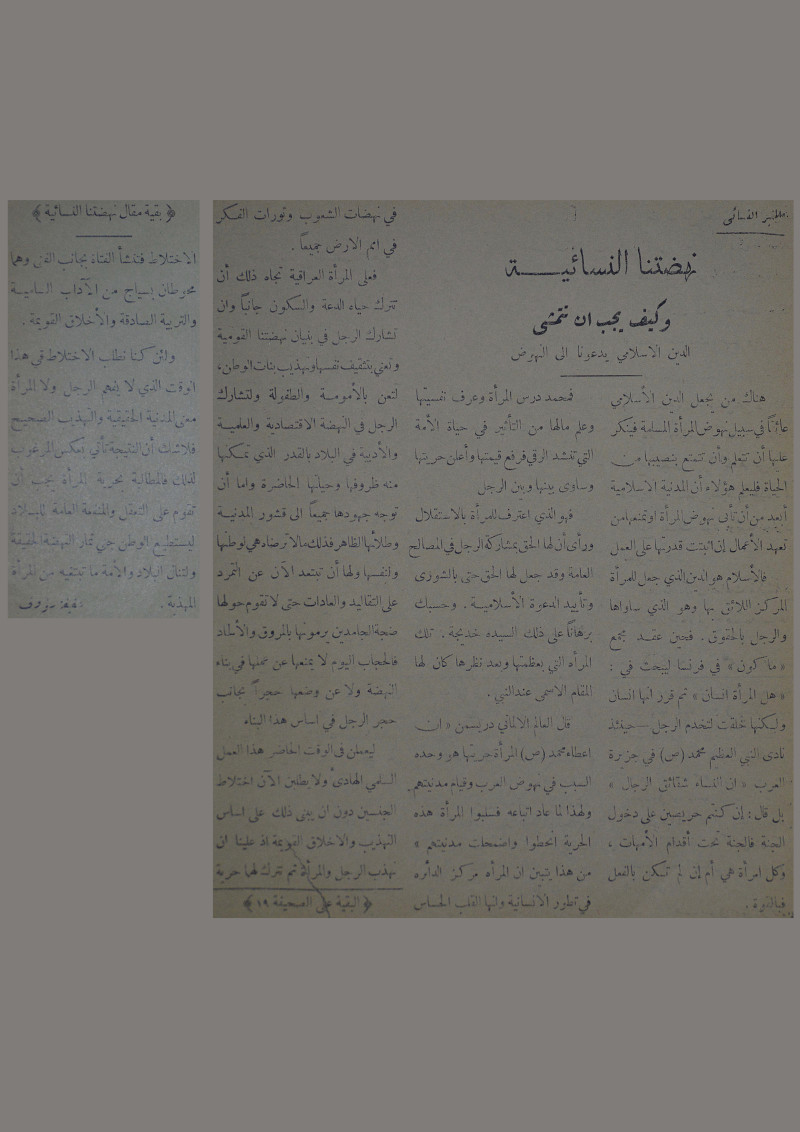 المنبر النسائي
نهضتنا النسائيـــة
وكيف يجب ان نتمشى
الدين الاسلامي يدعونا الى النهوض
هناك من يجعل الدين الأسلامي
عائقاً في سبيل نهوض المرأة المسلمة فينكر
عليها أن تتعلم وأن تتمتع بنصيبها من
الحياة فليعلم هؤلاء أن المدنية الاسلامية
أبعد من أن تأبى نهوض المرأة او تمنعها من
تعهد الأعمال إن اثبتت قدرتها على العمل
فالأسلام هو الدين الذي جعل للمرأة
المركز اللائق بها وهو الذي ساواها
والرجل بالحقوق . فحين عقد مجمع
« ماكون » في فرنسا ليبحث في :
« هل المرأة انسان » ثم قرر انها انسان
ولكنها خلقت لتخدم الرجل — حينئذ
نادى النبي العظيم محمد (ص) في جزيرة
العرب « ان النساء شقائق الرجال »
بل قال : إن كنتم حريصين على دخول
الجنة فالجنة تحت أقدام الأمهات ،
وكل امرأة هي أم إن لم تكن بالفعل
فبالقوة .
فمحمد درس المرأة وعرف نفسيتها
وعلم مالها من التأثير في حياة الأمة
التي تنشد الرقي فرفع قيمتها وأعلن حريتها
وساوى بينها وبين الرجل
فهو الذي اعترف للمرأة بالاستقلال
ورأى أن لها الحق بمشاركة الرجل في المصالح
العامة وقد جعل لها الحق حتى بالشورى
وتأييد الدعوة الأسلاميـة . وحسبك
برهاناً على ذلك السيده خديجة . تلك
المرأه التي بعظمتها وبعد نظرها كان لها
المقام الاسمى عند النبي .
قال العالم الالماني دريسمن « ان
اعطاء محمد (ص) المرأة حريتها هو وحده
السبب في نهوض العرب وقيام مدنيتهم
ولهذا لما عاد اتباعه فسلبوا المرأة هذه
الحرية انحطوا واضمحلت مدنيتهم »
من هذا يتبين ان المرأه مركز الدائره
في تطور الأنسانية وانها القلب الحساس
في نهضات الشعوب وثورات الفكر
في امم الارض جميعاً .
فعلى المرأة العراقية تجاه ذلك أن
تترك حياه الدعة والسكون جانباً وان
تشارك الرجل في بنيان نهضتنا القومية
وتعني بتثقيف نفسها وتهذيب بنات الوطن،
لتعن بالأمومـة والطفولة ولتشارك
الرجل في النهضة الاقتصادية والعلميـة
والأدبية في البلاد بالقدر الذي تمكنها
منه ظروفها وحياتها الحاضرة واما أن
توجه جهودها جميعاً الى قشور المدنيـة
وطلائها الظاهر فذلك مالا ترضاه هي لوطنها
ولنفسها ولها أن تبتعد الآن عن التمرد
على التقاليد والعادات حتى لا تقوم حولها
ضجة الجامدين يرمونها بالمروق والألحاد
فالحجاب اليوم لا يمنعها عن عملها في بناء
النهضة ولا عن وضعها حجراً بجانب
حجر الرجل في اساس هذا البناء
ليعملن في الوقت الحاضر هذا العمل
السامي الهادىء ولا يطلبن الآن اختلاط
الجنسين دون ان يبنى ذلك على اساس
التهذيب والاخلاق القويمة اذ علينا ان
نهذب الرجل والمرأة ثم نترك لهما حرية
﴿ البقية على الصحيفة ١٩ ﴾
﴿ بقية مقال نهضتنا النسائية ﴾
الاختلاط فتنشأ الفتاة بجانب الفتى وهما
محوطان بسياج من الآداب الساميـة
والتربية الصادقة والأخلاق القويمة .
ولئن كنا نطلب الاختلاط في هذا
الوقت الذي لا يفهم الرجل ولا المرأة
معنى المدنية الحقيقية والتهذيب الصحيح
فلاشك أن النتيجة تأتي بعكس المرغوب
لذلك فالمطالبة بحرية المرأة يجب أن
تقوم على التعقل والمنفعة العامة للبلاد
ليستطيع الوطن جني ثمار النهضة الحقيقة
ولتنال البلاد والأمة ما تبتغيه من المرأة
المهذبة .
رؤوف